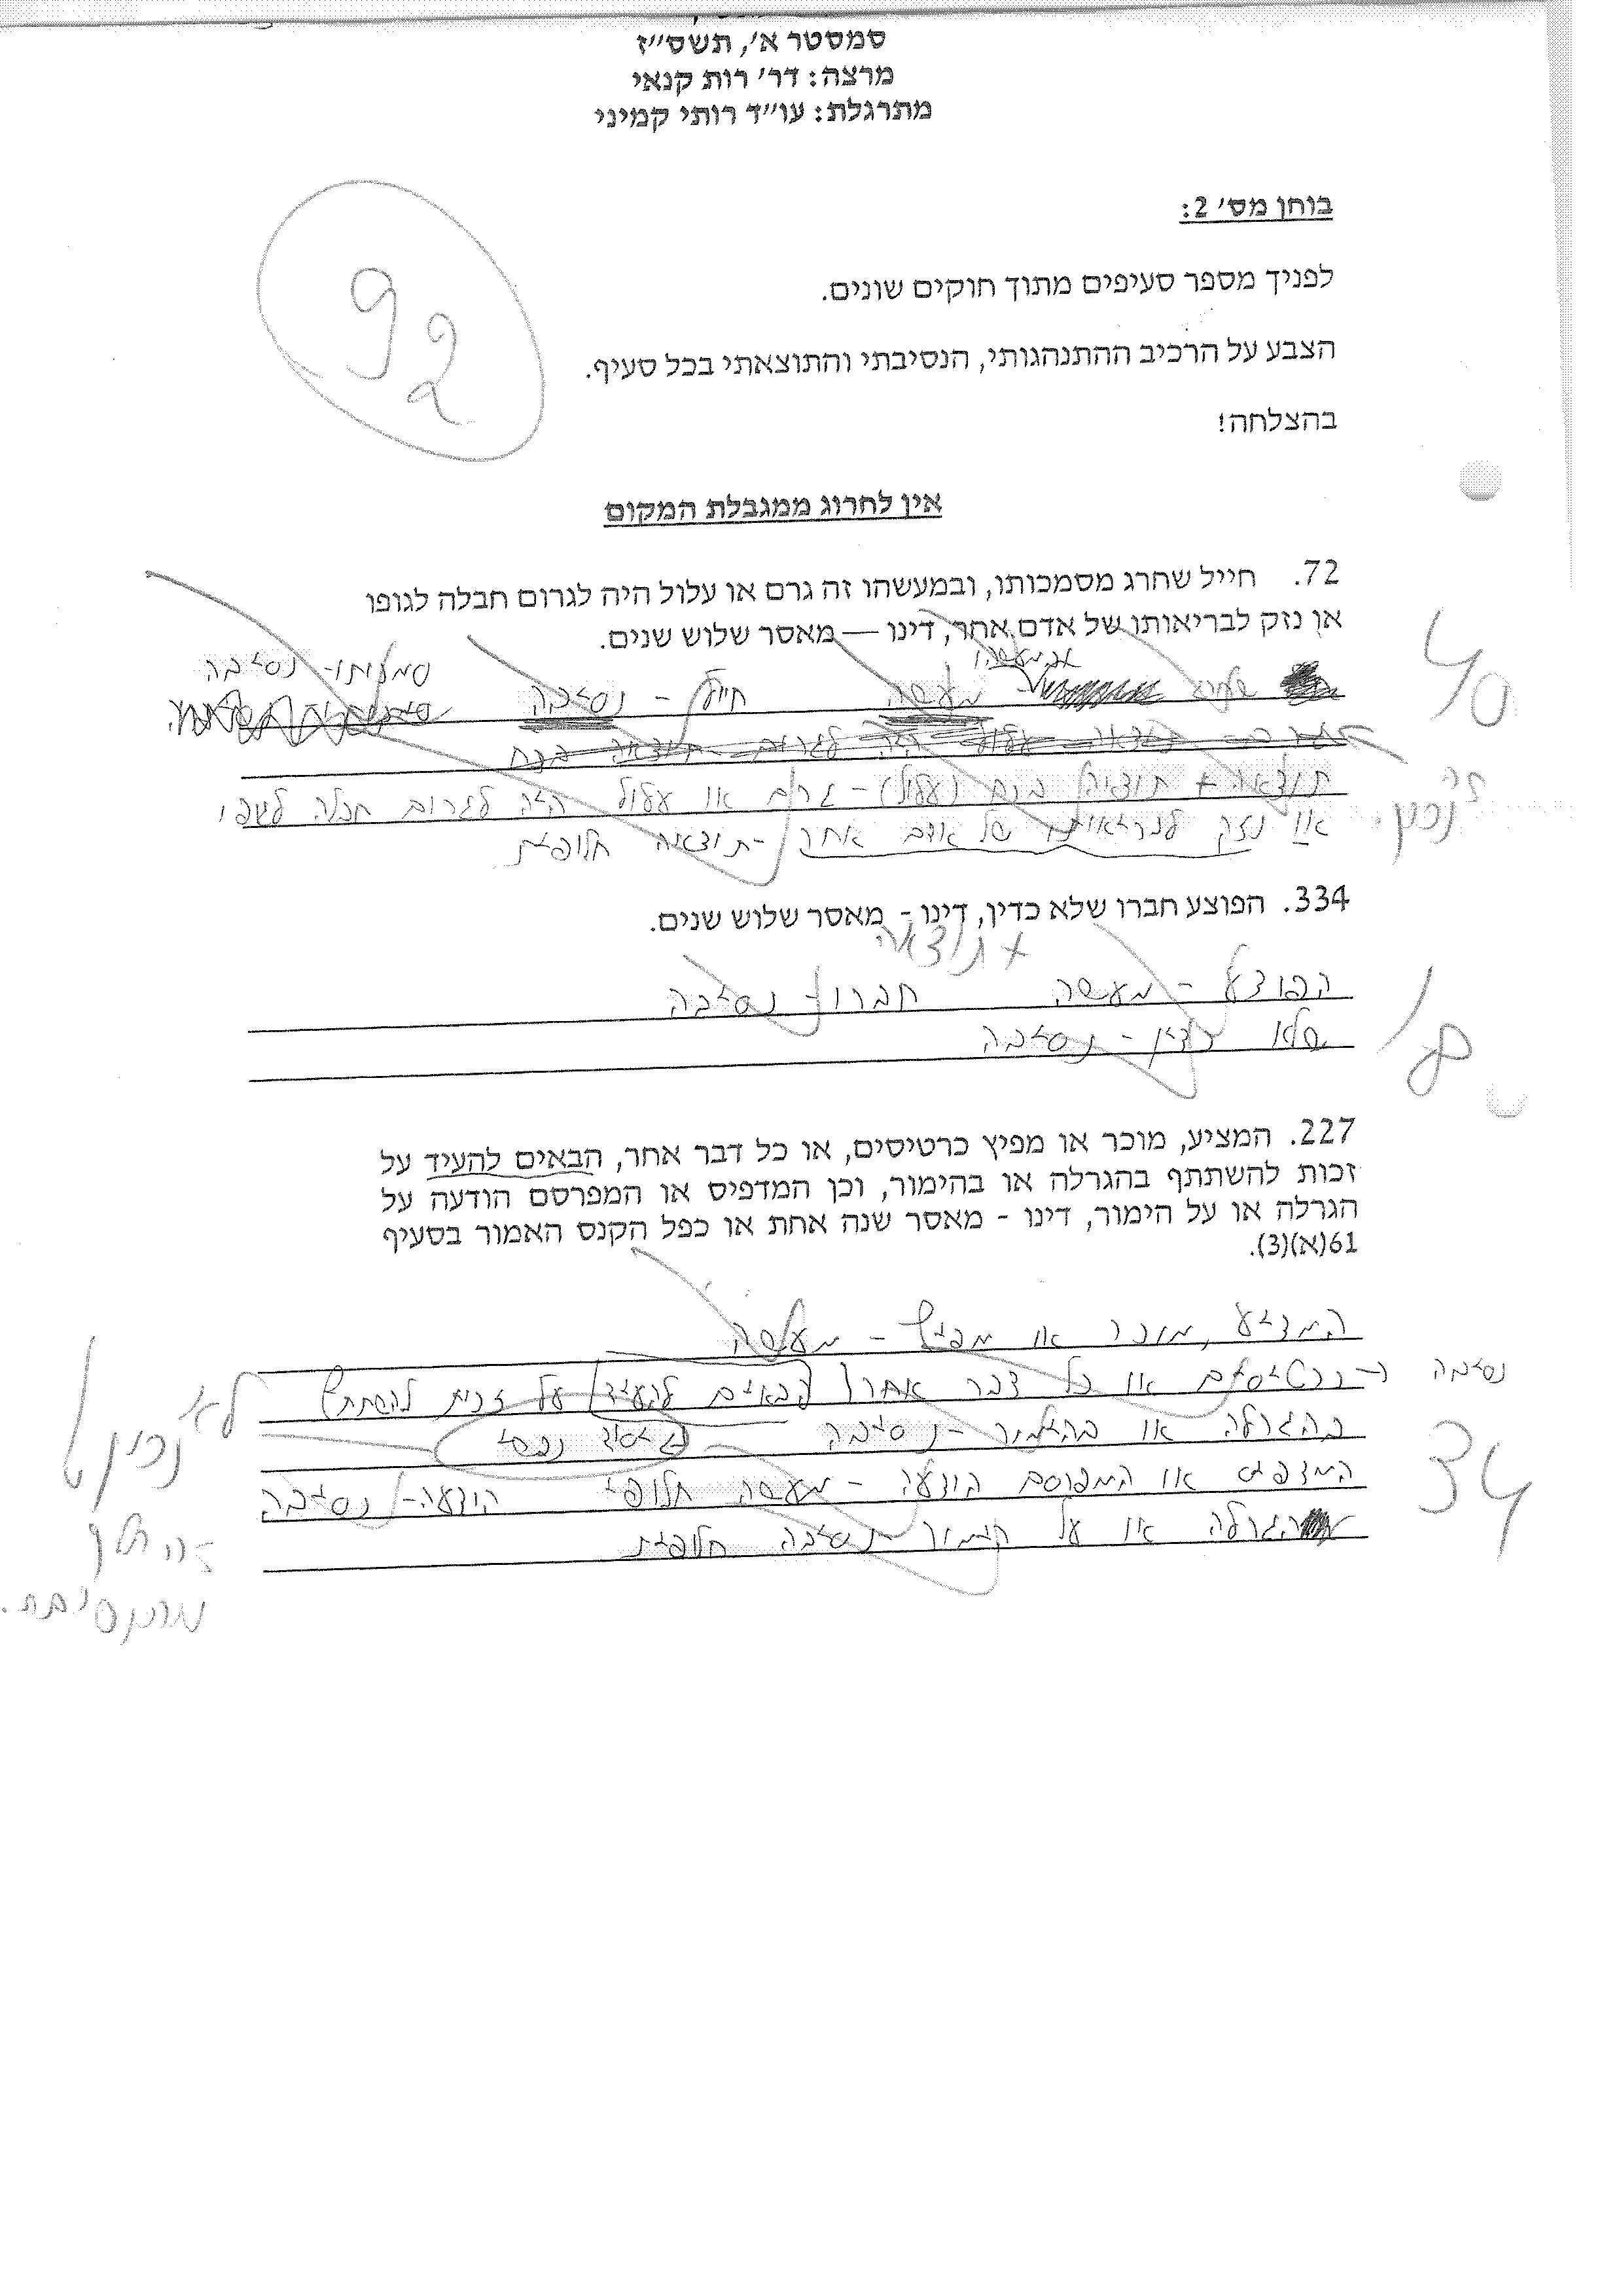 סמסטר א', תשס"ז
מרצה: דר' רות קנאי
מתרגלת: עו"ד רותי קמיני
בוחן מס' 2:
92
לפניך מספר סעיפים מתוך חוקים שונים.
הצבע על הרכיב ההתנהגותי, הנסיבתי והתוצאתי בכל סעיף.
בהצלחה!
אין לחרוג ממגבלת המקום
72. חייל שחרג מסמכותו, ובמעשהו זה גרם או עלול היה לגרום חבלה לגופו
או נזק לבריאותו של אדם אחר, דינו — מאסר שלוש שנים.
40
ובמעשהו
שחרג - מעשה חייל - נסיבה סמכותו - נסיבה
תוצאה + תוצאה בכח (עלול) - גרם או עלול היה לגרום חבלה לגופו
זה נכון.
או נזק לבריאותו של אדם אחר - תוצאה חלופית
334. הפוצע חברו שלא כדין, דינו - מאסר שלוש שנים.
+ תוצאה
הפוצע - מעשה חברו - נסיבה
שלא כדין - נסיבה
18
227. המציע, מוכר או מפיץ כרטיסים, או כל דבר אחר, הבאים להעיד על
זכות להשתתף בהגרלה או בהימור, וכן המדפיס או המפרסם הודעה על
הגרלה או על הימור, דינו - מאסר שנה אחת או כפל הקנס האמור בסעיף
61(א)(3).
המציע, מוכר או מפיץ - מעשה
נסיבה ← כרטיסים או כל דבר אחר הבאים להעיד על זכות להשתתף
בהגרלה או בהימור - נסיבה יסוד נפשי
לא נכון
המדפיס או המפרסם הודעה - מעשה חלופי הודעה - נסיבה
34
הגרלה או על הימור - נסיבה חלופית
זה חלק
מהנסיבה.